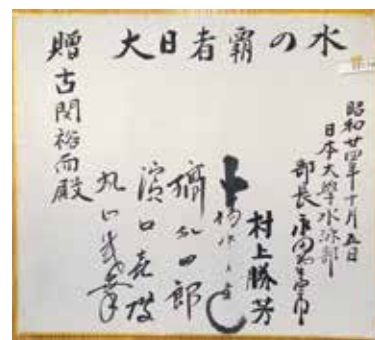 水の霸者日大
昭和廿四年十月五日
日本大學水泳部
部長
村上勝芳
橋爪四郎
濱口喜博
丸山茂幸
贈古関裕而殿